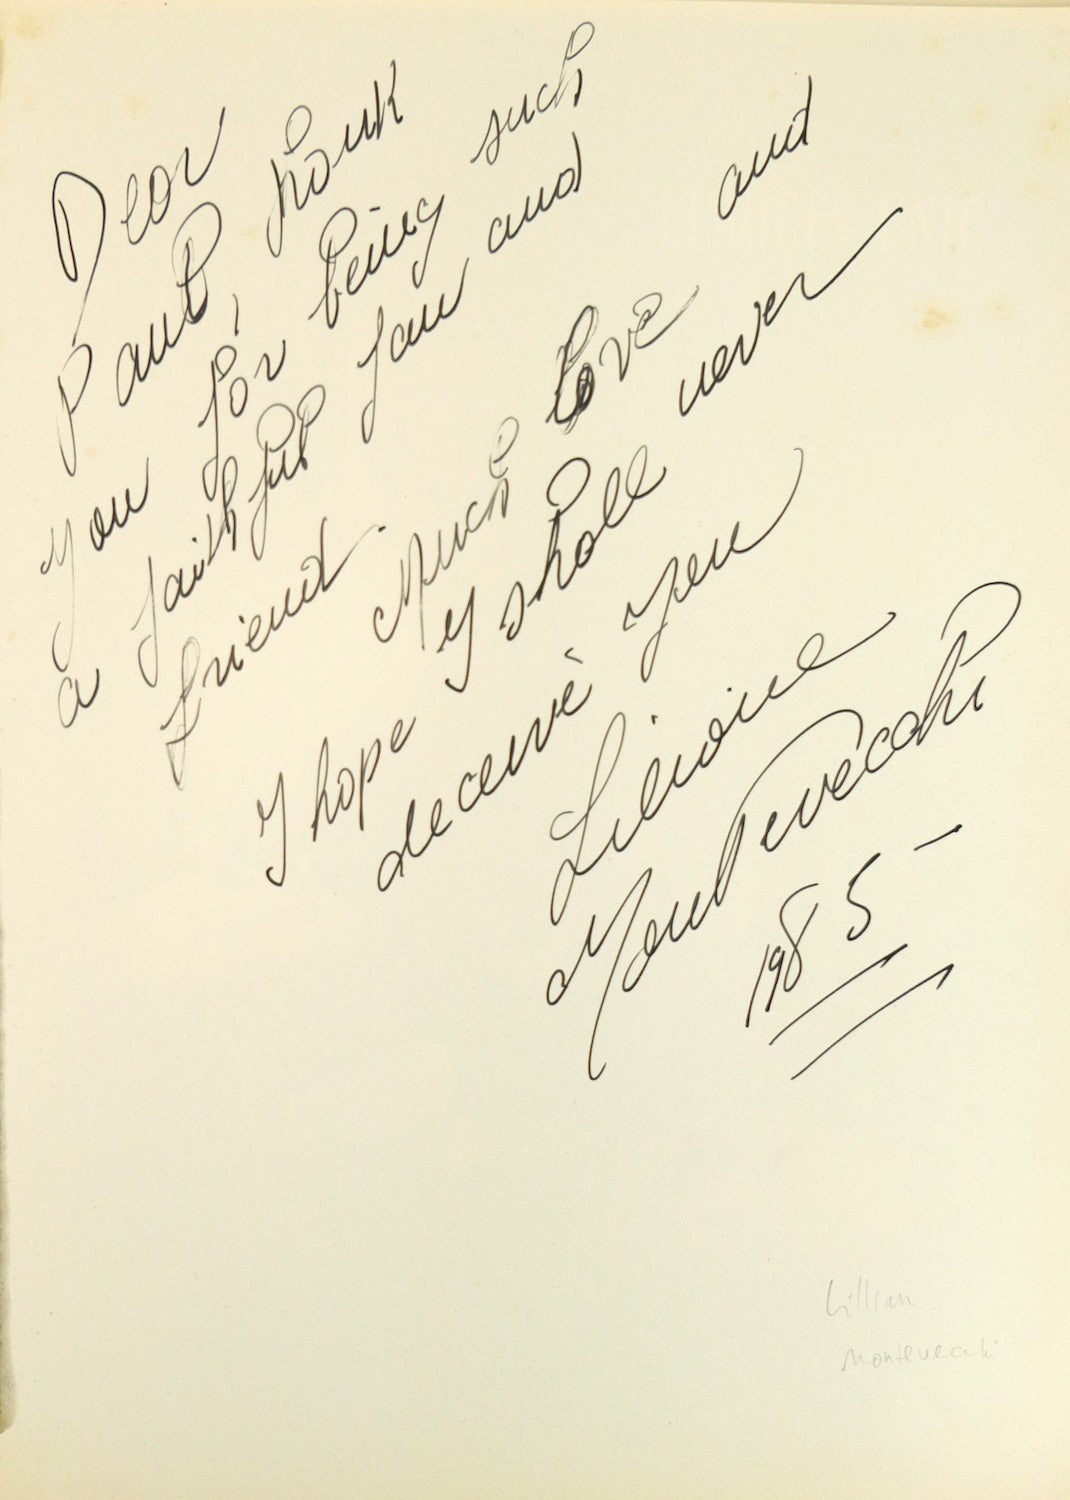 Dear
Paul, thank
you for being such
a faithful fan and
friend.
Much love and
I hope I shall never
deceive you
Liliane
Montevecchi
1985 -
Lillian
Montevecchi